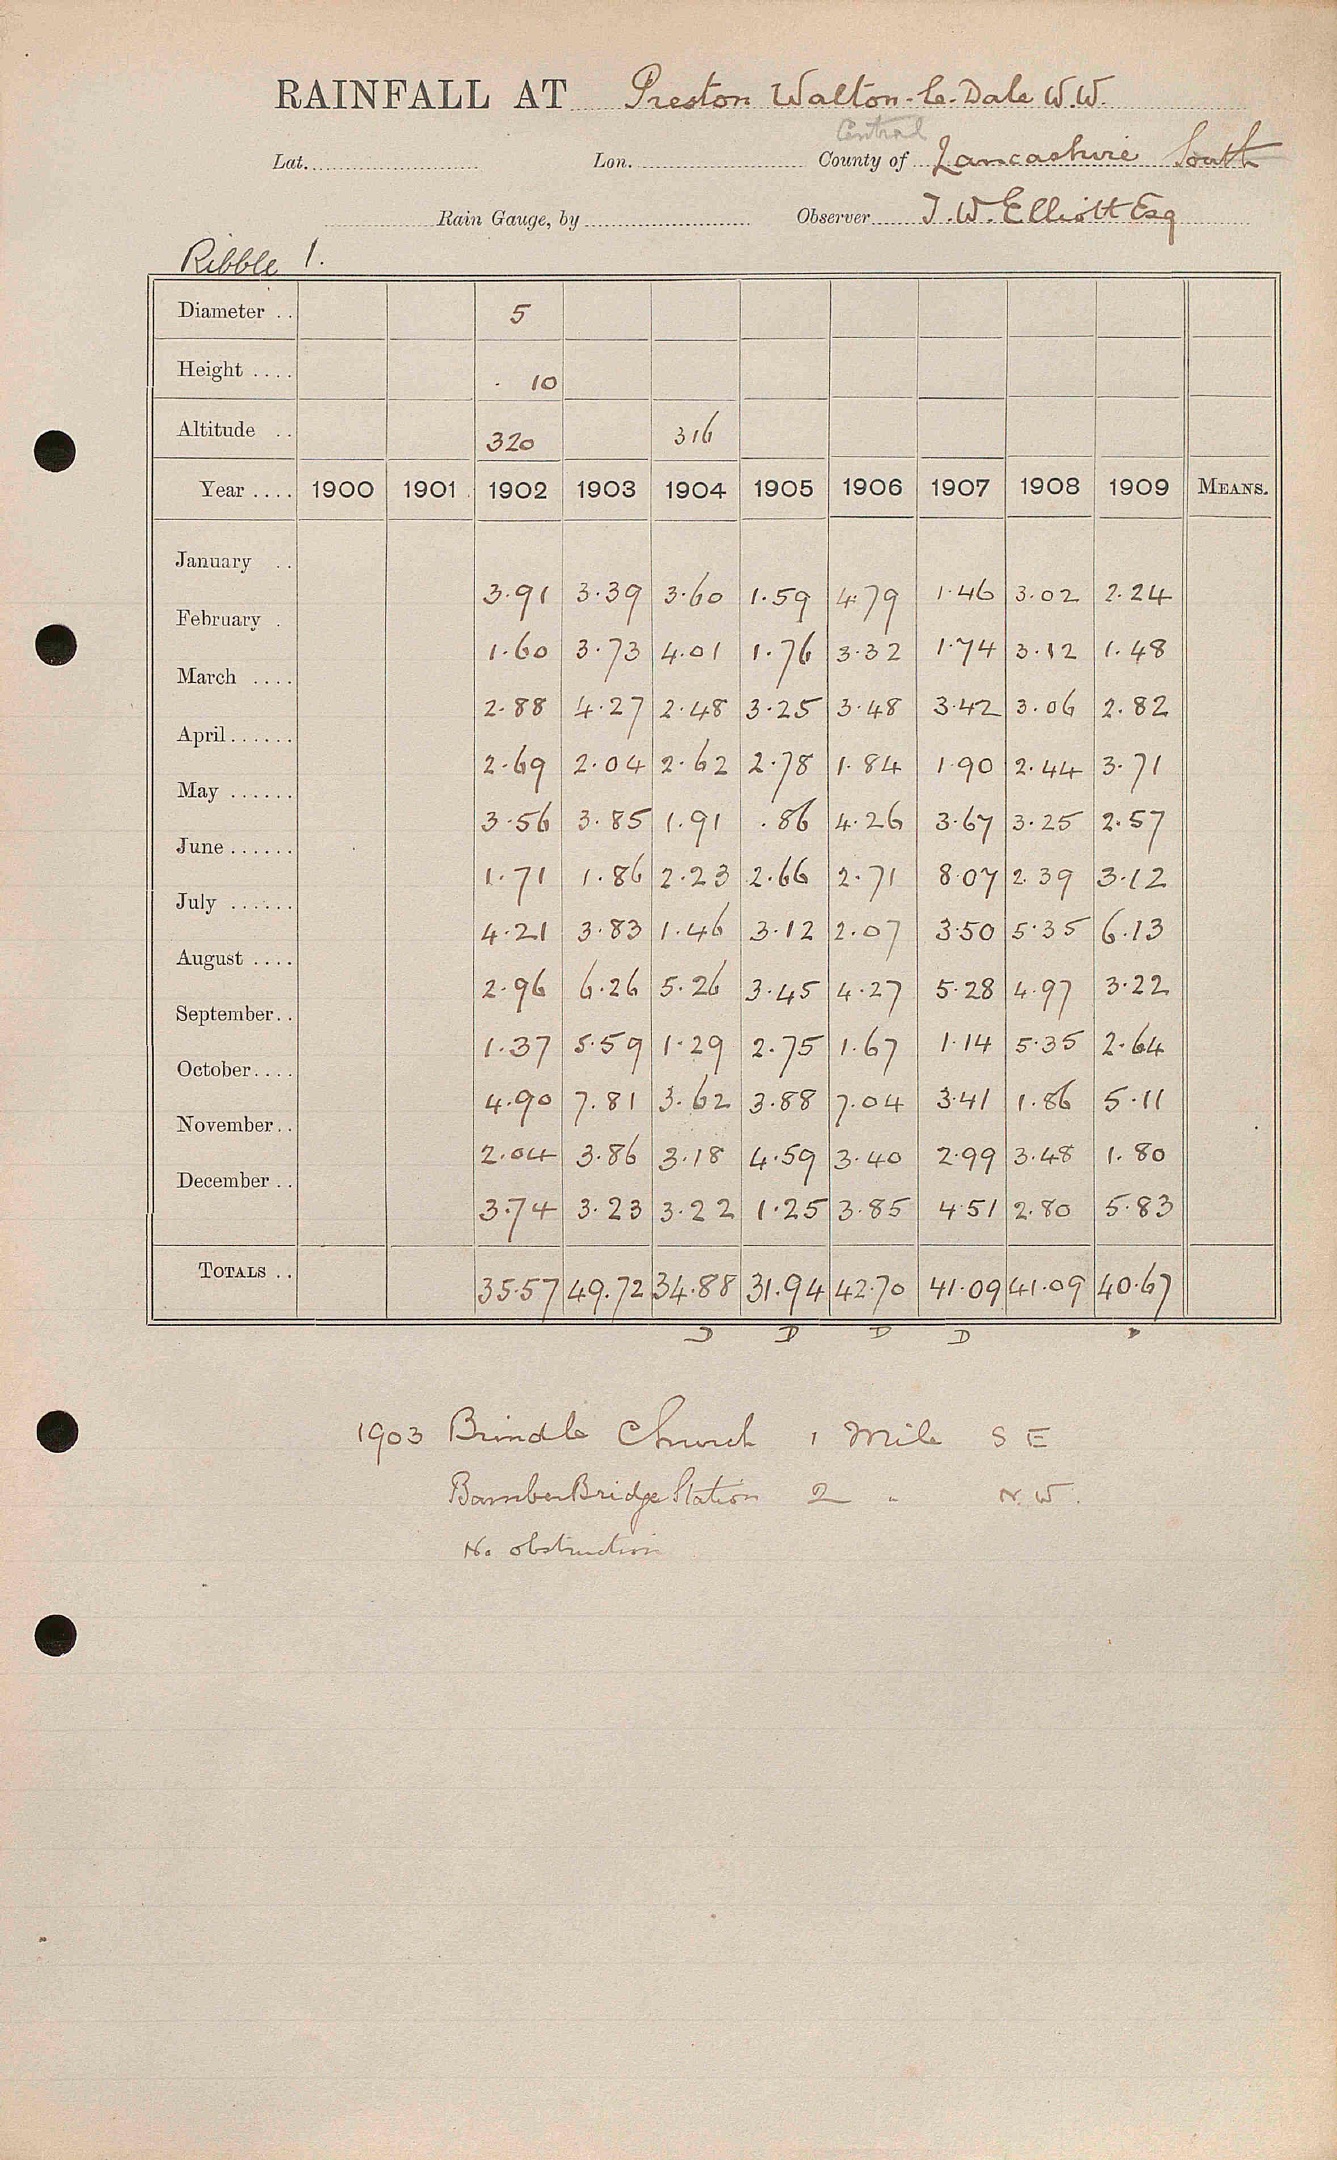 RAINFALL AT Preston Walton-le-Dale W.W.
Central
Lat. Lon. County of Lancashire South
Rain Gauge, by Observer J. W. Elliott Esq
Ribble 1.
Diameter .. 5
Height .... 10
Altitude .. 320 316
Year .... 1900 1901 1902 1903 1904 1905 1906 1907 1908 1909 MEANS.
January .. 3.91 3.39 3.60 1.59 4.79 1.46 3.02 2.24
February . 1.60 3.73 4.01 1.76 3.32 1.74 3.12 1.48
March .... 2.88 4.27 2.48 3.25 3.48 3.42 3.06 2.82
April...... 2.69 2.04 2.62 2.78 1.84 1.90 2.44 3.71
May ...... 3.56 3.85 1.91 .86 4.26 3.67 3.25 2.57
June ...... 1.71 1.86 2.23 2.66 2.71 8.07 2.39 3.12
July ...... 4.21 3.83 1.46 3.12 2.07 3.50 5.35 6.13
August .... 2.96 6.26 5.26 3.45 4.27 5.28 4.97 3.22
September.. 1.37 5.59 1.29 2.75 1.67 1.14 5.35 2.64
October.... 4.90 7.81 3.62 3.88 7.04 3.41 1.86 5.11
November.. 2.04 3.86 3.18 4.59 3.40 2.99 3.48 1.80
December .. 3.74 3.23 3.22 1.25 3.85 4.51 2.80 5.83
TOTALS .. 35.57 49.72 34.88 31.94 42.70 41.09 41.09 40.67
D D D D D
1903 Brindle Church 1 Mile S E
Bamber Bridge Station 2 " N.W.
No obstruction